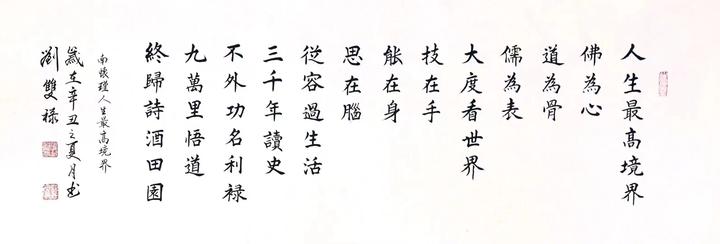 人生最高境界
佛為心
道為骨
儒為表
大度看世界
技在手
能在身
思在腦
從容過生活
三千年讀史
不外功名利祿
九萬里悟道
終歸詩酒田園
南懷瑾人生最高境界
歲在辛丑之夏月書
劉雙祿